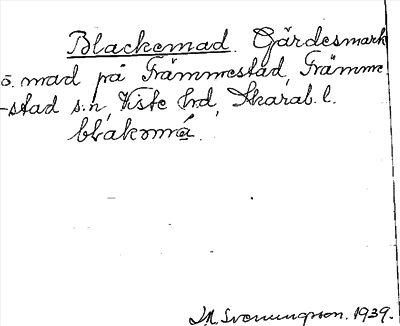 Blackemad. Gärdesmark
o. mad på Främmestad, Främme
-stad s:n, Viste hrd, Skarab. l.
blákomá.
J.A. Svenungsson. 1939.